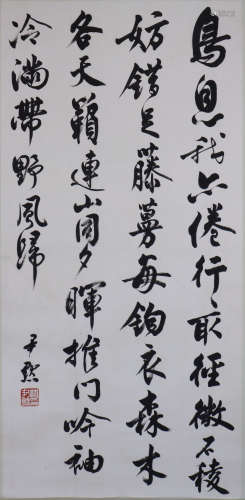 鳥息我亦倦行〻取徑微石稜
妨錯足藤蔓每鉤衣森木
各天籟連山同夕暉推門吟袖
冷滿帶野風歸
尹默